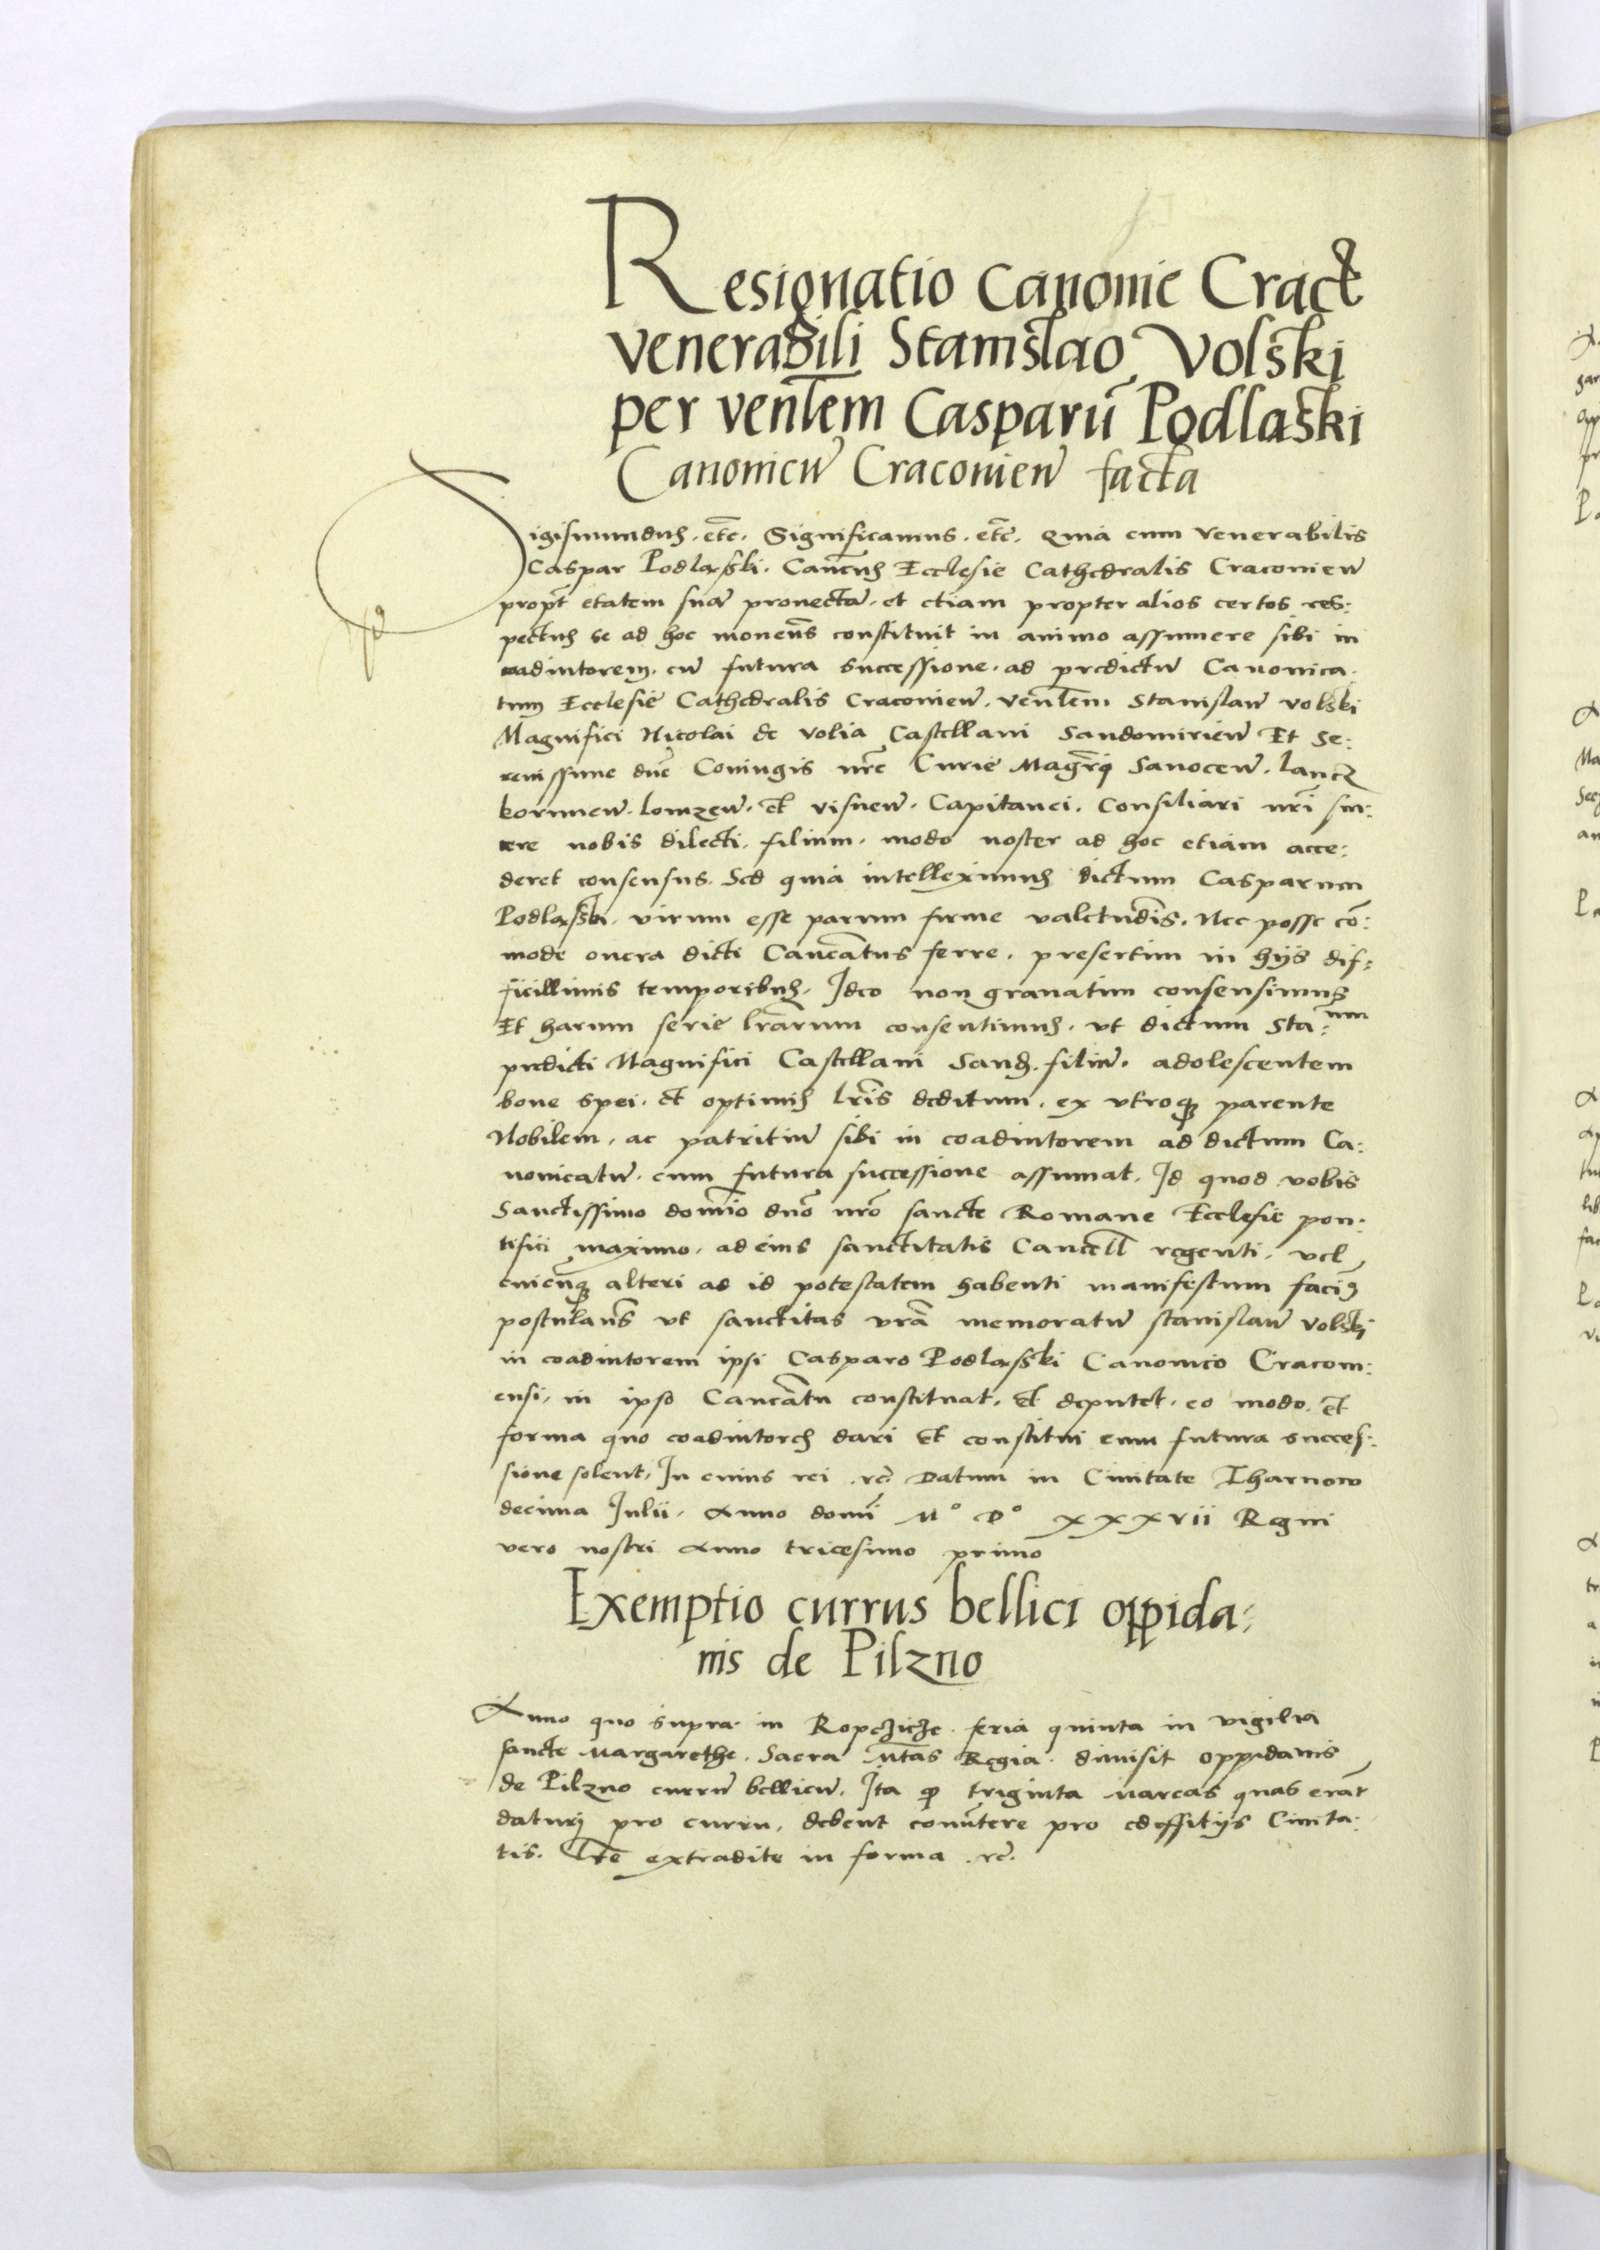 Resignatio Canonie Crac
venerabili Stanislao Volski
per ven̄lem Casparū Podlaski
Canonicū Cracovien̄ facta
Sigismundus. etc̄. Significamus. etc̄. Quia cum venerabilis
Caspar Podlaski. Can̄cus Ecclesie Cathedralis Cracovien̄
propt̄ etatem suā provectā. et etiam propter alios certos res:
pectus se ad hoc moven̄s constituit in animo assumere sibi in
coadiutorem. cū futura successione. ad predictū Canonica:
tum Ecclesie Cathedralis Cracovien̄. ven̄lem Stanislaū volski
Magnifici Nicolai de volia Castellani Sandomirien̄ Et Se:
renissime dn̄e Coniugis nr̄e Curie Magr̄i Sanocen̄. lancz
korunen̄. lomzen̄. et visnen̄. Capitanei. Consiliari nr̄i sin:
cere nobis dilecti. filium. modo noster ad hoc etiam acce:
deret consensus. Sed quia intelleximus dictum Casparum
Podlaski. virum esse parum firme valetudīs. Nec posse cō:
mode onera dicti Can̄catus ferre. presertim in hijs dif:
ficillimis temporibus. Ideo non gravatim consensimus
Et harum serie lr̄arum consentimus. vt dictum Sta:num
predicti Magnifici Castellani Sand. filiū. adolescentem
bone spei. et optimis lr̄is deditum. ex vtroq̄ parente
Nobilem. ac patritiū sibi in coadiutorem ad dictum Ca:
nonicatū. cum futura successione assumat. Id quod vobis
Sanctissimo domīo dn̄o nr̄o sancte Romane Ecclesie pon:
tifici maximo. ad eius sanctitatis Cancell̄ regenti. vel
cuicūq̄ alteri ad id potestatem habenti manifestum facim̄
postulan̄s vt sanctitas vr̄a memoratū stanislaū volski
in coadiutorem ipsi Casparo Podlaski Canonico Cracovi:
ensi. in ipso Can̄catu constituat. et deputet. eo modo. et
forma quo coadiutores dari et constitui cum futura succes:
sione solent. In cuius rei .rc̄. Datum in Civitate Tharnow
decima Iulii. Anno domī M° D° XXXvii Regni
vero nostri Anno tricesimo primo
Exemptio currus bellici oppida:
nis de Pilzno
Anno quo supra in Ropczicze. feria quinta in vigilia
sancte Margarethe. Sacra M̄tas Regia. dimisit oppidanis
de Pilzno currū bellicū. Ita q̄ triginta Marcas quas erāt
daturi pro curru. debent conv̄tere pro edeffitijs Civita:
tis. Lr̄e extradite in forma .rc̄.